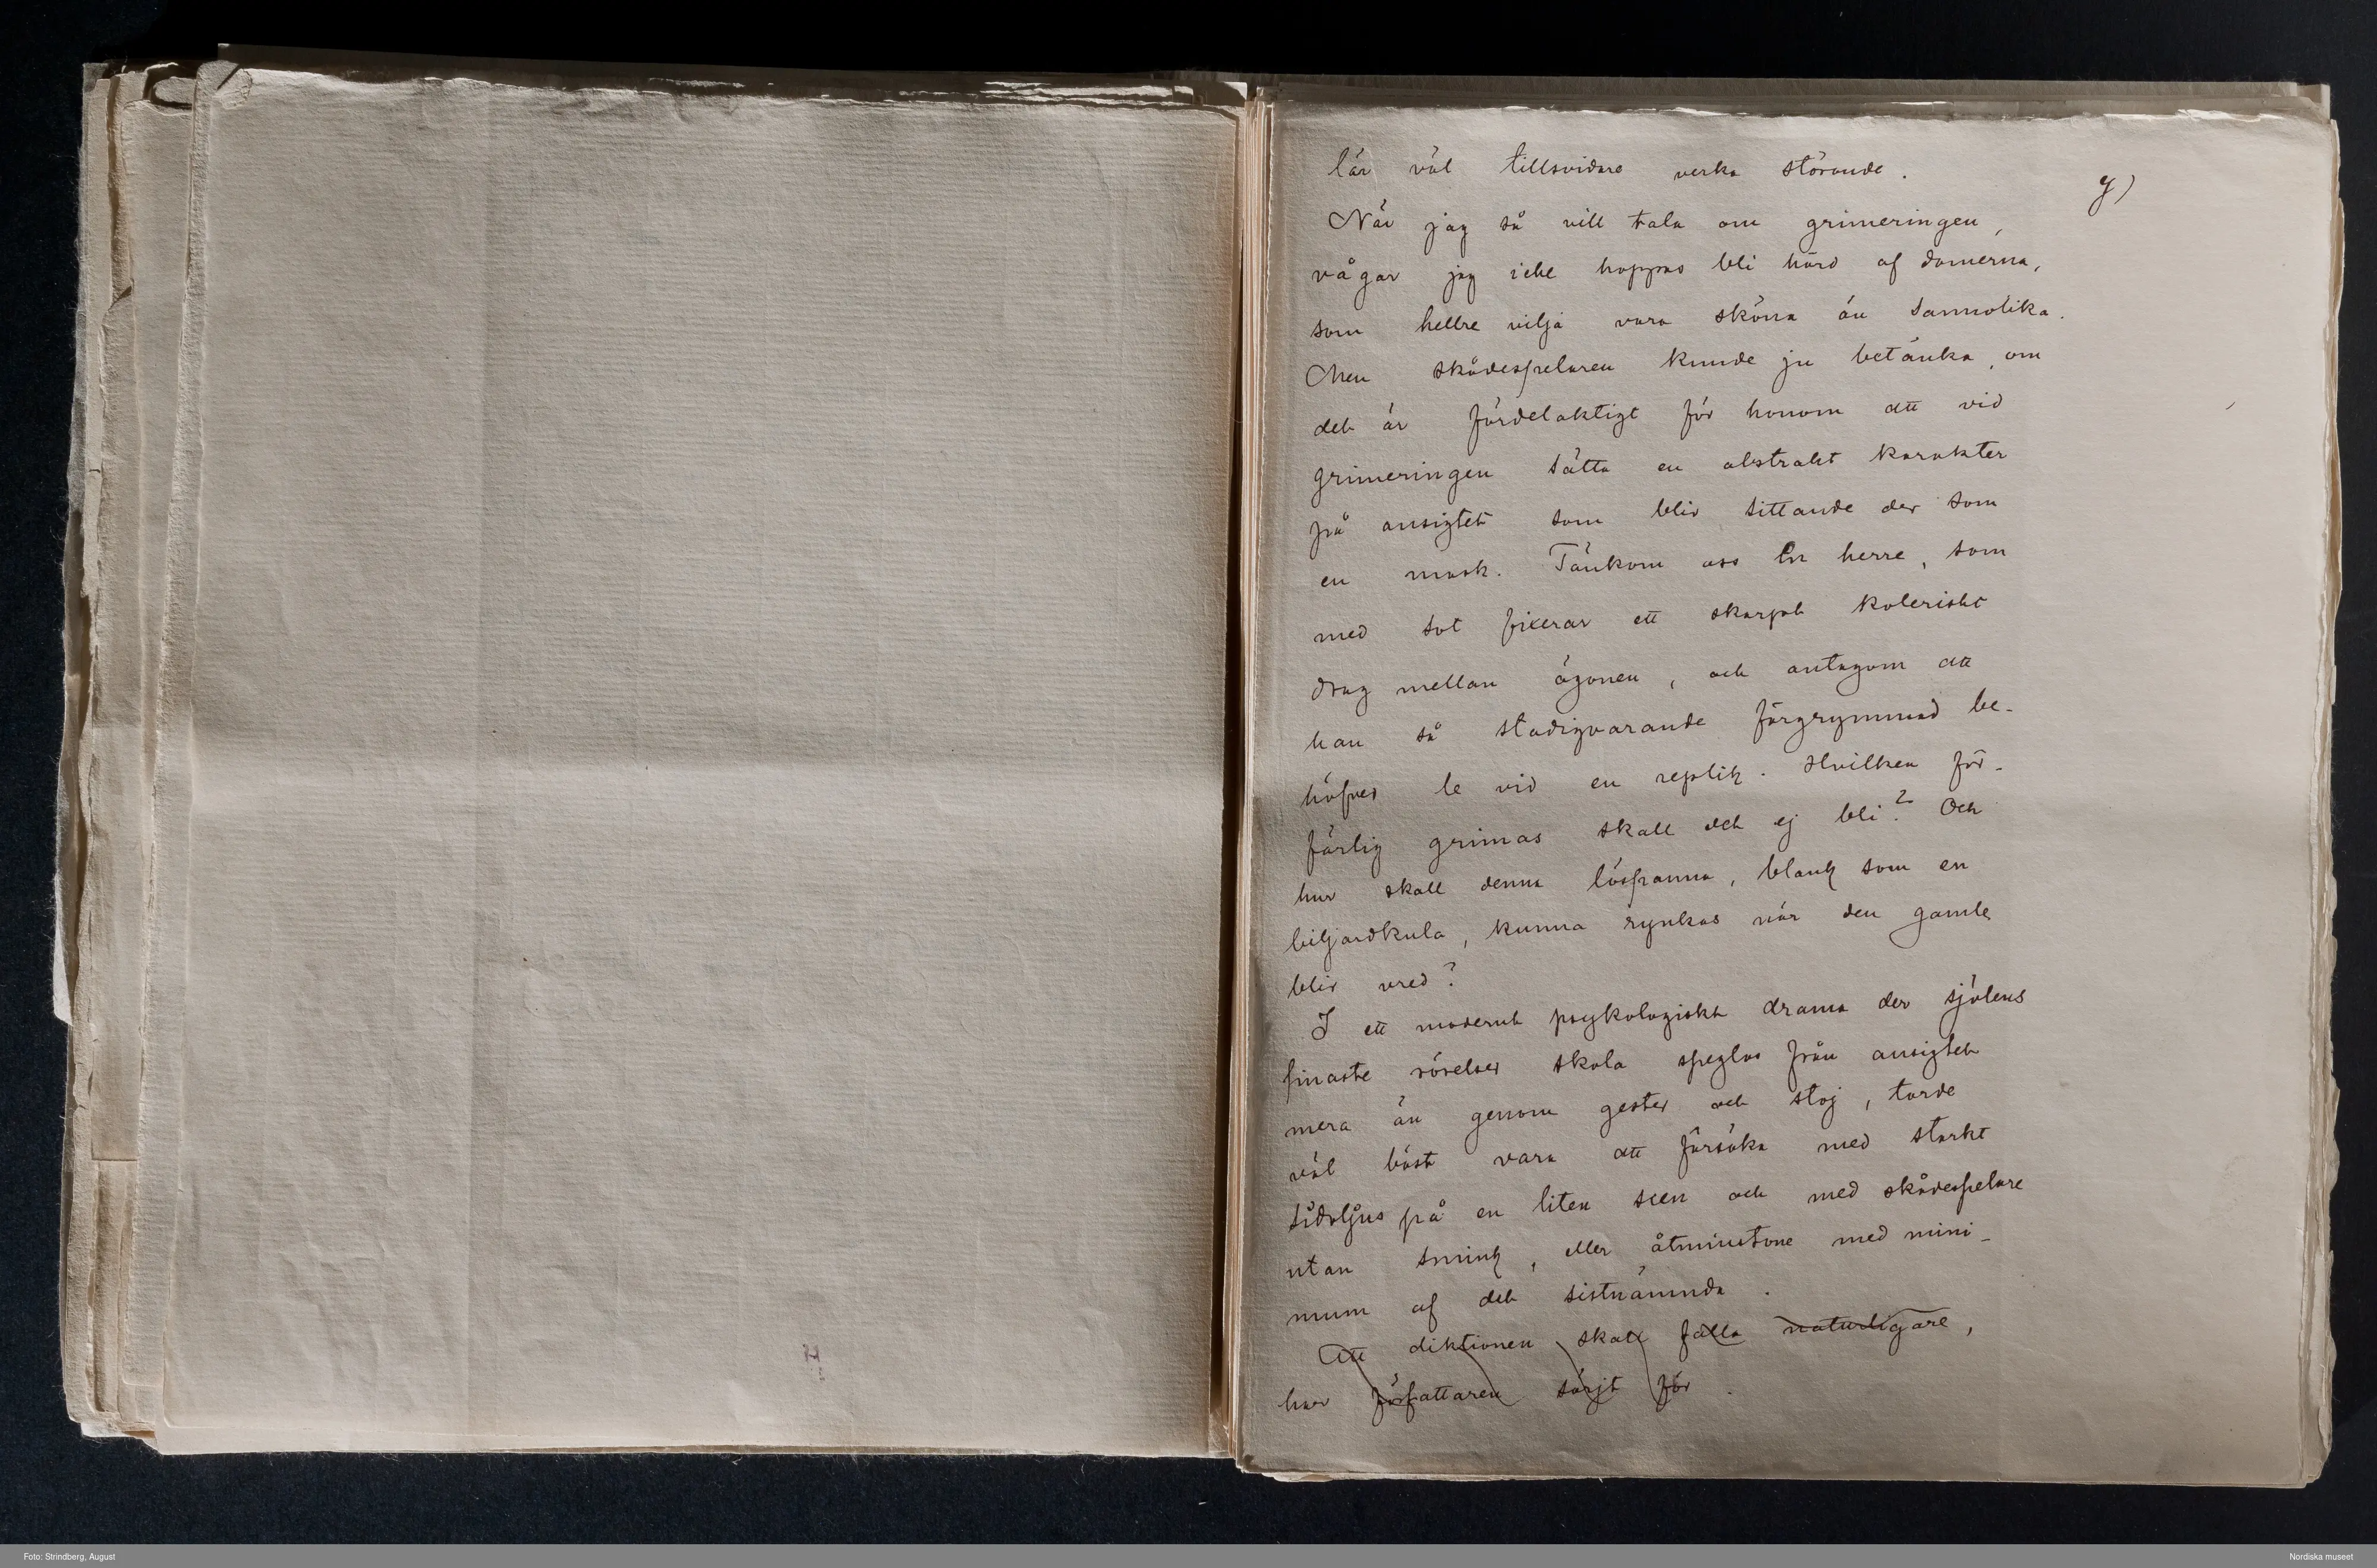 lär väl tillsvidare verka störande.
y)
När jag så vill tala om grimeringen,
vågar jag icke hoppas bli hörd af damerna,
som hellre vilja vara sköna än sannolika.
Men skådespelaren kunde ju betänka, om
det är fördelaktigt för honom att vid
grimeringen sätta en abstrakt karakter
på ansigtet som blir sittande der som
en mask. Tänkom oss En herre, som
med sot fixerar ett skarpt koleriskt
drag mellan ögonen, och antagom att
han så stadigvarande förgrymmad be-
höfver le vid en replik. Hvilken för-
färlig grimas skall det ej bli? Och
hur skall denna löspanna, blank som en
biljardkula, kunna rynkas när den gamle
blir vred?
I ett modernt psykologiskt drama der själens
finaste rörelser skola speglas från ansigtet
mera än genom gester och stoj, torde
väl bäst vara att försöka med starkt
sidoljus på en liten scen och med skådespelare
utan smink, eller åtminstone med mini-
mum af det sistnämnda.
Att diktionen skall falla naturligare,
har författaren sörjt för.
H
Foto: Strindberg, August
Nordiska museet